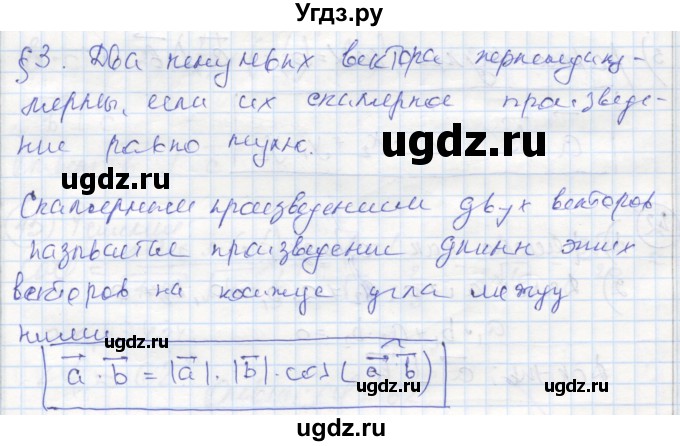 Угдз.ру
§3. Два ненулевых вектора перпендику-
лярны, если их скалярное произведе-
ние равно нулю.
uгдз.ru
uгдз.ru
Скалярным произведением двух векторов
называется произведение длинн этих
векторов на косинус угла между
ними
uгдз.ru
uгдз.ru
a · b = |a| · |b| · cos (a b)